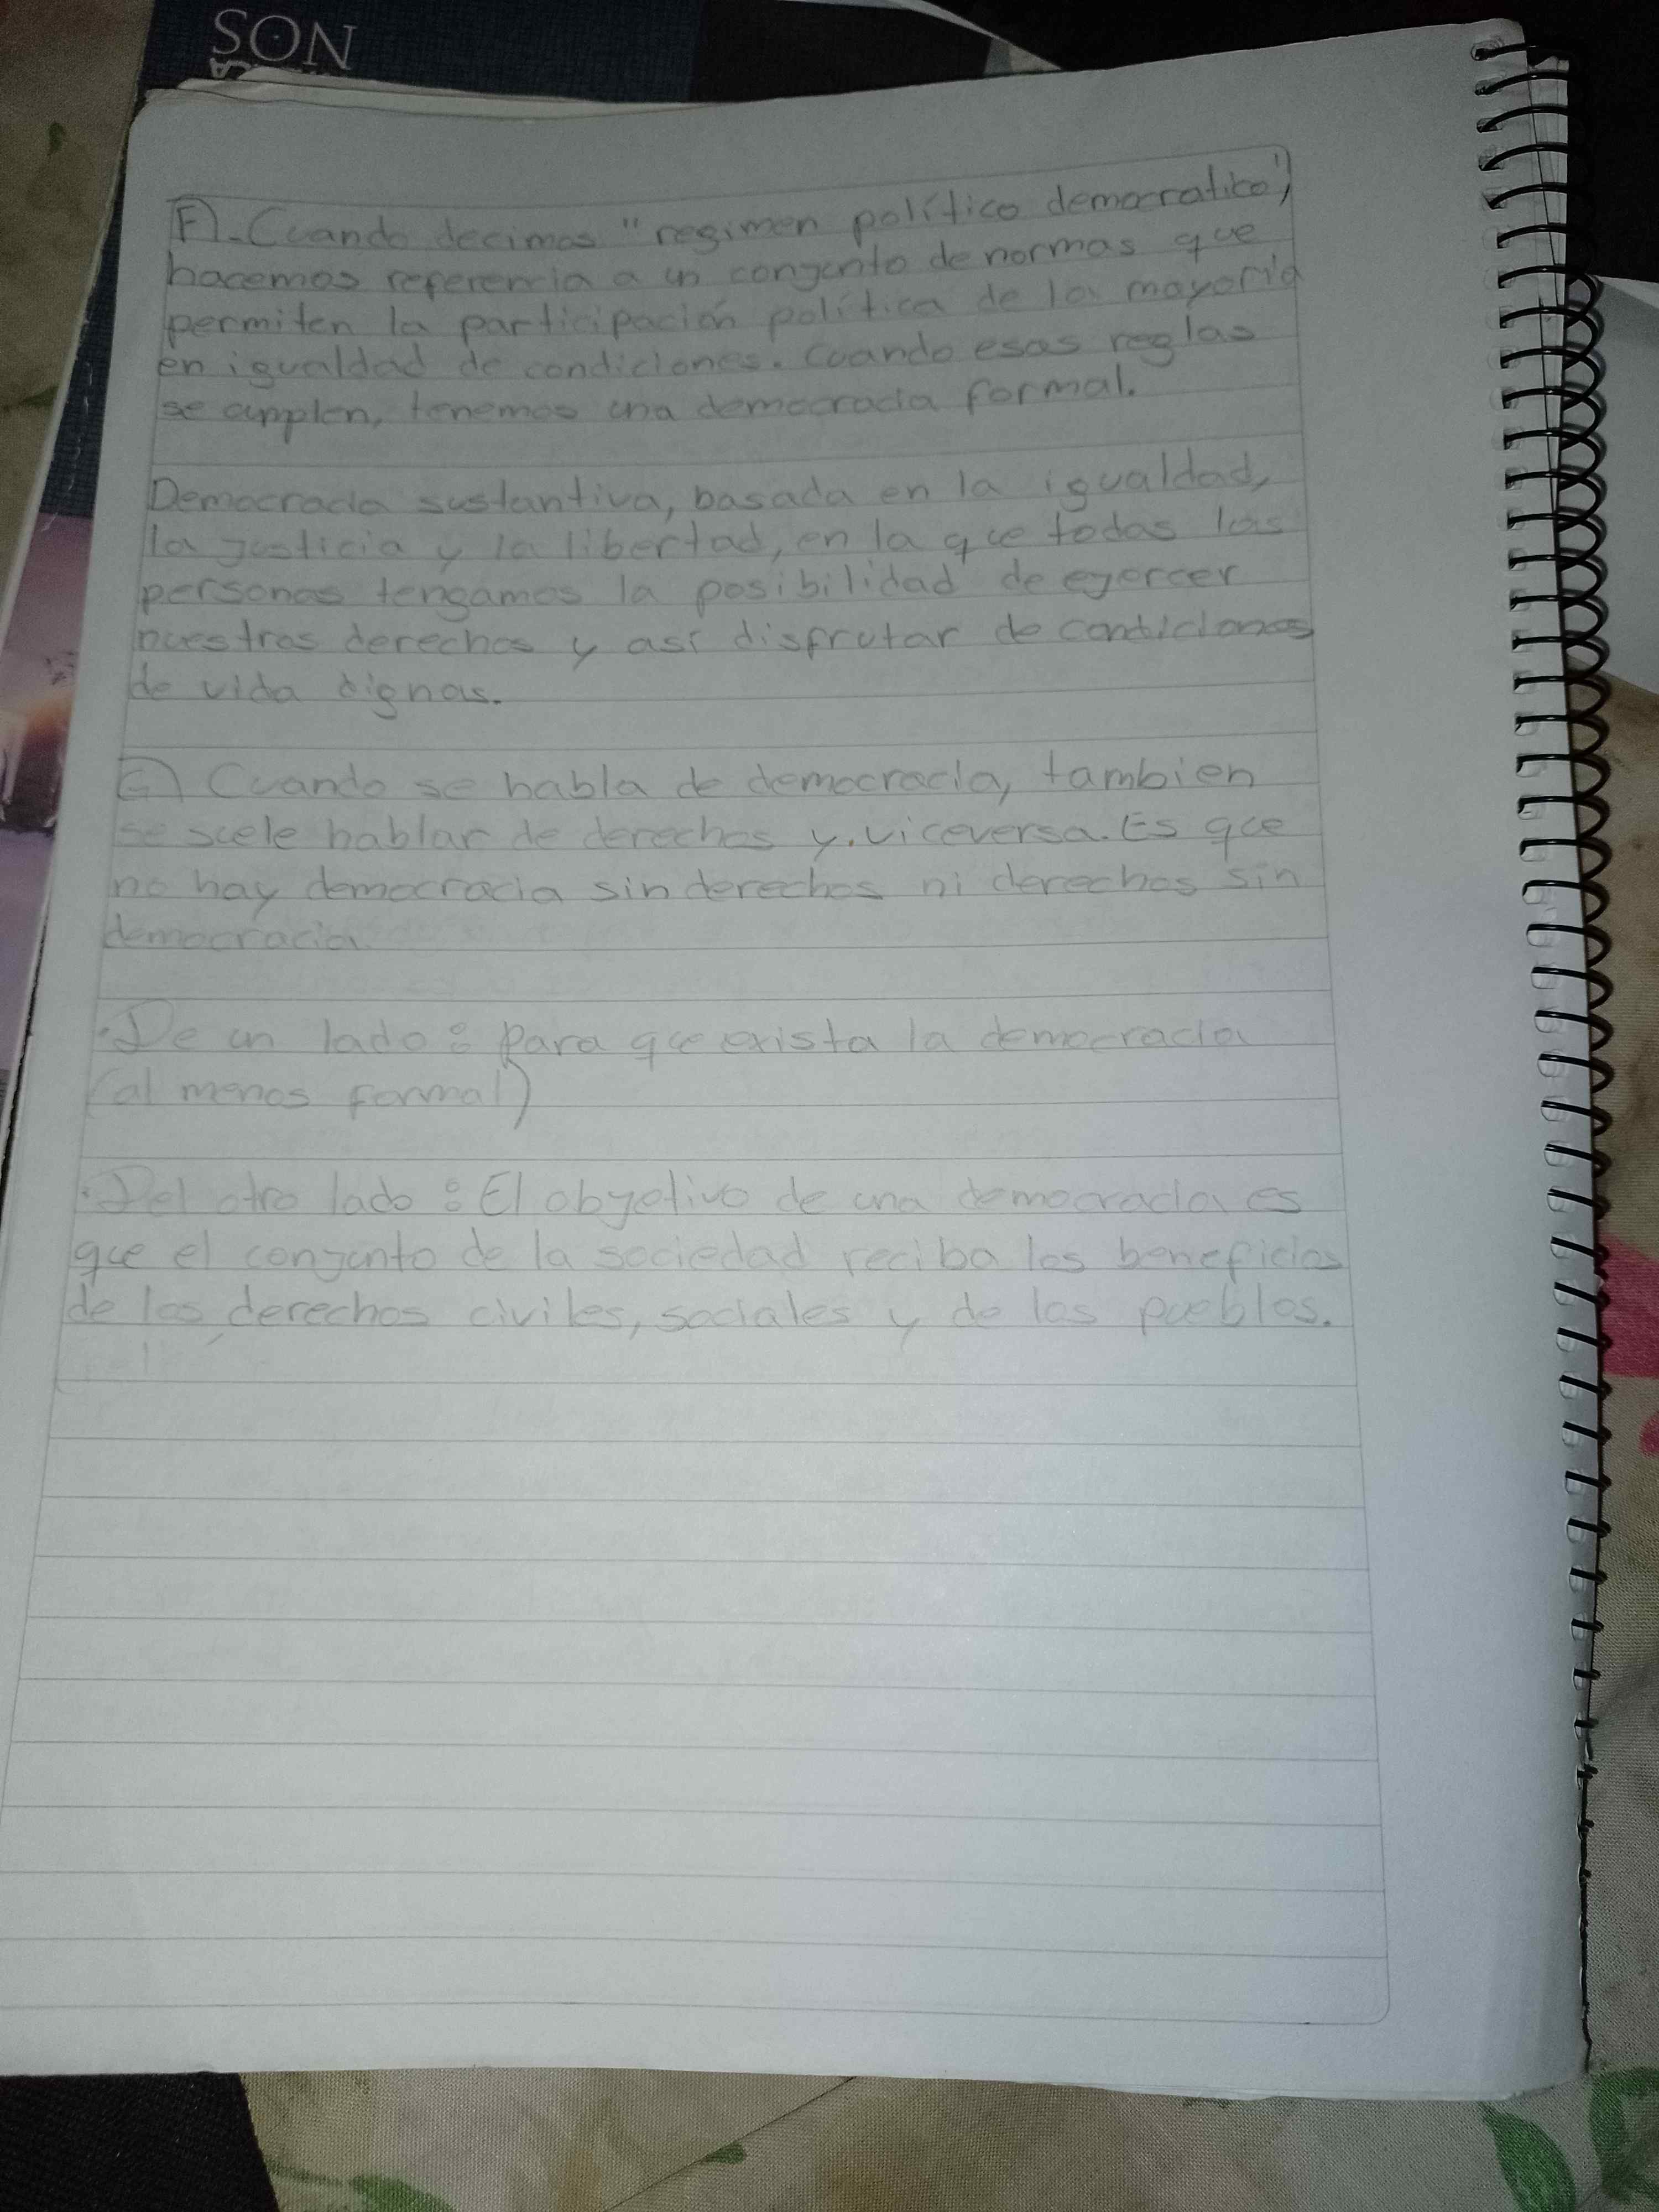 SON
F)- Cuando decimos "regimen político democratico",
hacemos referencia a un conjunto de normas que
permiten la participación política de la mayoría
en igualdad de condiciones. Cuando esas reglas
se cumplen, tenemos una democracia formal.
Democracia sustantiva, basada en la igualdad,
la justicia y la libertad, en la que todas las
personas tengamos la posibilidad de ejercer
nuestros derechos y así disfrutar de condiciones
de vida dignas.
G) Cuando se habla de democracia, tambien
se suele hablar de derechos y viceversa. Es que
no hay democracia sin derechos ni derechos sin
democracia
·De un lado: Para que exista la democracia
(al menos formal)
·Del otro lado: El objetivo de una democracia es
que el conjunto de la sociedad reciba los beneficios
de los derechos civiles, sociales y de los pueblos.